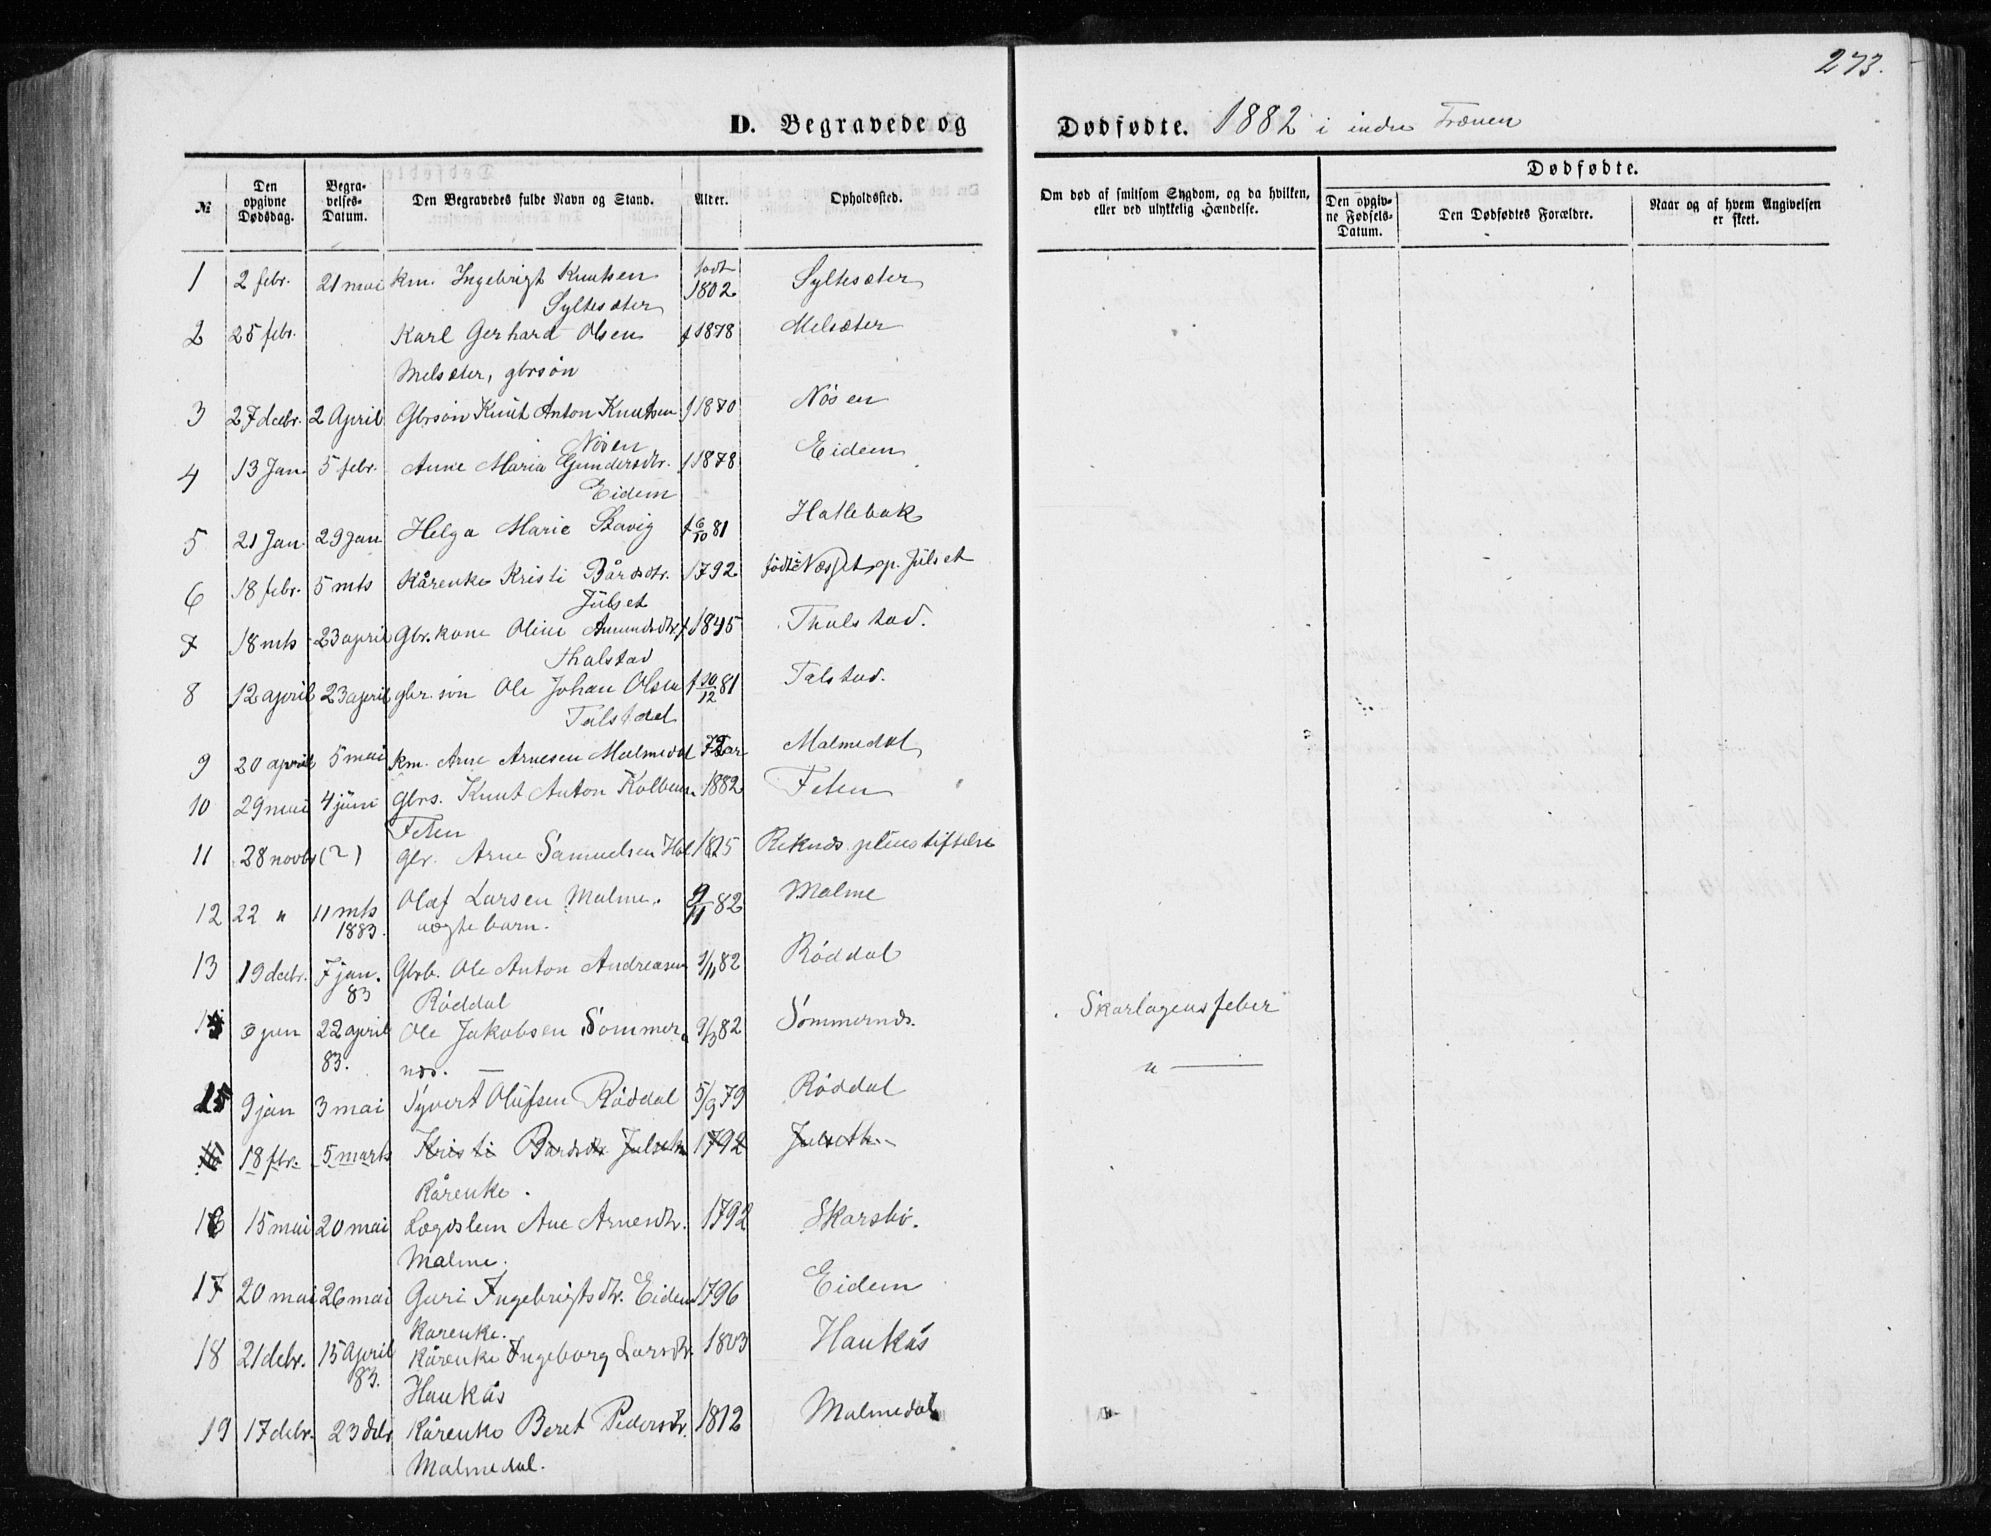 273.
D. Begravede og Dødfødte. 1882 i indre Frænen
№
Den opgivne Dødsdag.
Begravelses-Datum.
Den Begravedes fulde Navn og Stand.
Alder.
Opholdssted.
Om død af smitsom Sygdom, og da hvilken, eller ved ulykkelig Hændelse.
Dødfødte.
Den opgivne Fødsels-Datum.
Den Dødfødtes Forældre.
Naar og af hvem Angivelsen er skeet.
1 2 febr. 21 mai km. Ingebrigt Knutsen født 1802 Syltesæter
Syltesæter
2 25 febr. Karl Gerhard Olsen f 1878 Melsæter
Melsæter, gbrsøn
3 27 decbr. 2 April Gbrsøn Knut Anton Knutsen f 1870 Nøsen
Nøsen
4 13 Jan. 5 febr. Anne Maria Gundersdtr. f 1878 Eidem
Eidem
5 21 Jan. 29 Jan Helga Marie Stavig f 6/10 81 Hatlebak
6 18 febr. 5 mts Kårenke Kristi Bårdsdtr. 1792 født Næsset, op. Julset
Julset
7 18 mts 23 april Gbr.kone Oline Amundsdtr f 1845 Thalstad.
Thalstad
8 12 april 23 april gbr.søn Ole Johan Olsen f 30/12 81 Talstad.
Talstad
9 20 april 5 mai km. Arne Arnesen Malmedal 72 aar Malmedal
10 29 mai 4 juni Gbrs. Knut Anton Kolbens. 1882 Feten
Feten
11 28 novbr (?) gbr. Arne Samuelsen Hol 1825 Reknæs pleiestiftelse
12 22 " 11 mts Olaf Larsen Malme. 9/11 82 Malme
1883. uægte barn.
13 19 decbr. 7 jan. Gbrb. Ole Anton Andreasen 9/11 82 Røddal
83 Røddal
14 3 jan 22 april Ole Jakobsen Sommer 9/3 82 Sommernæs. Skarlagensfeber
83. næs. —
15 9 jan 3 mai Syvert Olufsen Røddal 5/9 79 Røddal " —
16 18 fbr. 5 marts Kristi Bardsdr Julseth 1792 Julseth.
Kårenke.
16 15 mai 20 mai Lægdslem Ane Arnesdtr. 1792 Skarsbø.
Malme.
17 20 mai 26 mai Guri Ingebrigtsdtr. Eidem 1796 Eidem
Karenke.
18 21 debr. 15 April Kårenke Ingeborg Larsdtr. 1803 Haukås
83. Haukås
19 17 debr. 23 debr Kårenke Beret Pedersdtr. 1812 Malmedal
Malmedal.